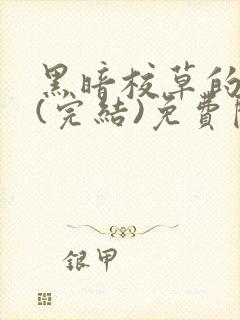 黑暗校草的
(完結)免費
銀甲